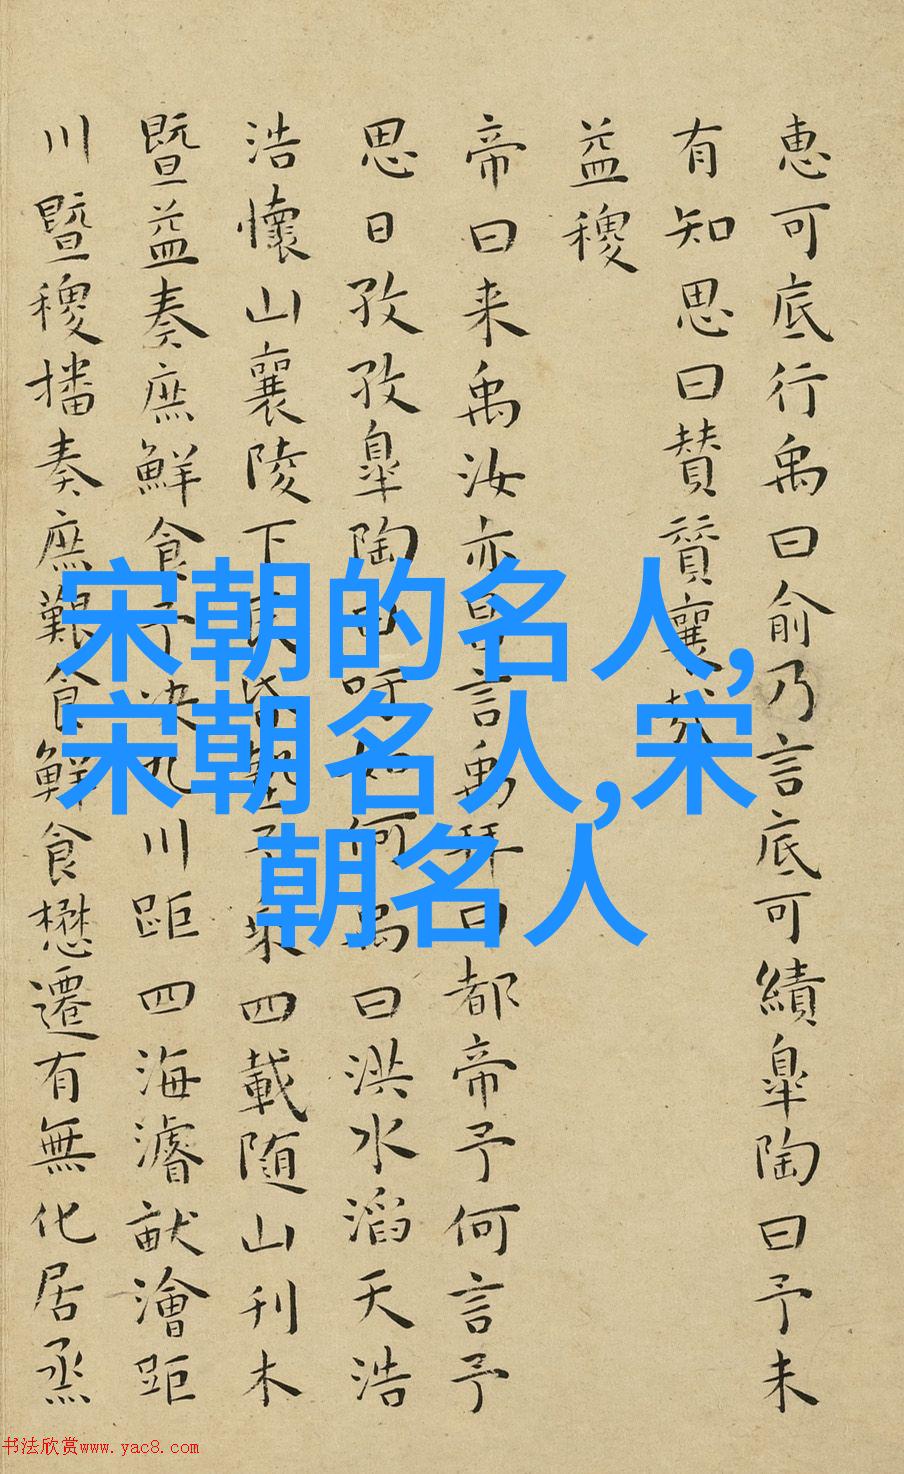 惠可底行禹曰俞乃言底可績皐陶曰予未
有知思曰賛賛襄哉
益稷
帝曰来禹汝亦昌言禹拜曰都帝予何言予
思日孜孜皐陶曰吁如何禹曰洪水滔天浩
浩懷山襄陵下民昏墊予乘四載随山刊木
暨益奏庶鮮食予决九川距四海濬畎澮距
川暨稷播奏庶艱食鮮食懋遷有無化居烝
宋朝的名人,
宋朝名人,宋
朝名人
书法欣赏www.yac8.com